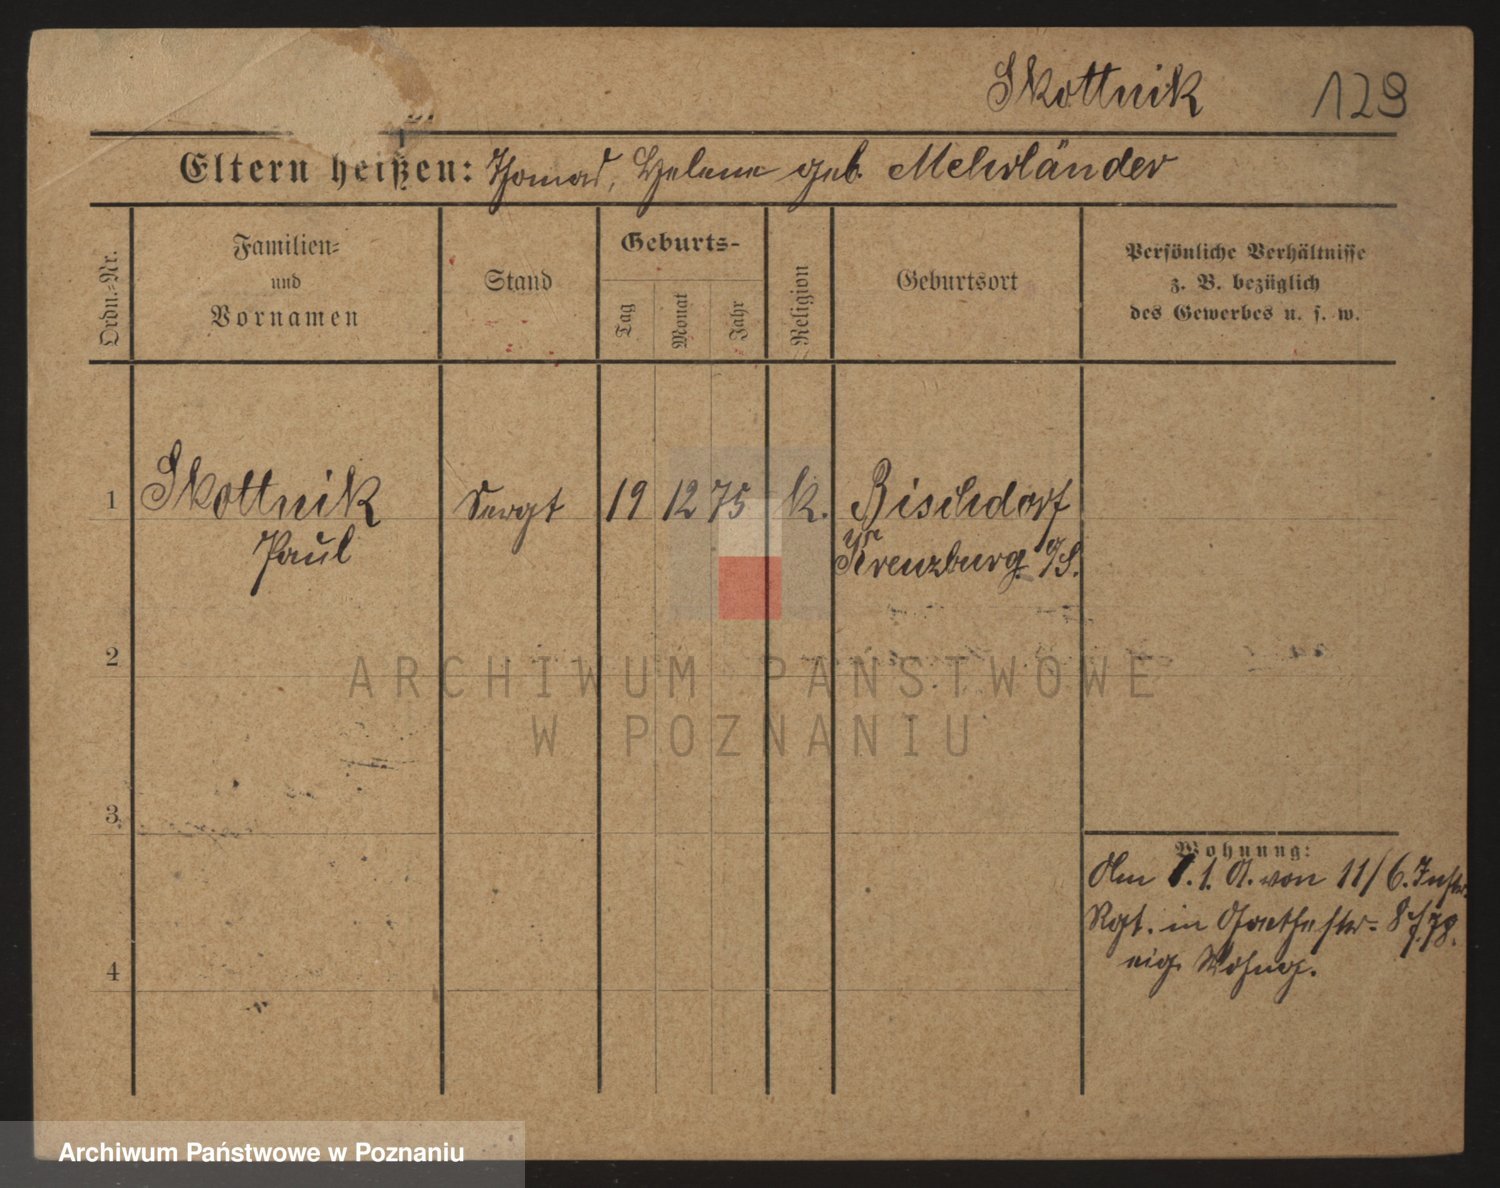 Skottnik 129
Eltern heißen: Thomas, Helene geb. Mehrländer
Ordn.-Nr.
Familien-
und
Vornamen
Stand
Geburts-
Tag
Monat
Jahr
Religion
Geburtsort
Persönliche Verhältnisse
z. B. bezüglich
des Gewerbes u. s. w.
1 Skottnik Sergt 19 12 75 k. Bischdorf
Paul Kr. Kreuzburg O/S.
2
3
4
Wohnung:
Am 1. 1. 0. von 11/6. Inftr.
Rgt. in Goethestr. 8
eig. Wohng.
ARCHIWUM PAŃSTWOWE
W POZNANIU
Archiwum Państwowe w Poznaniu